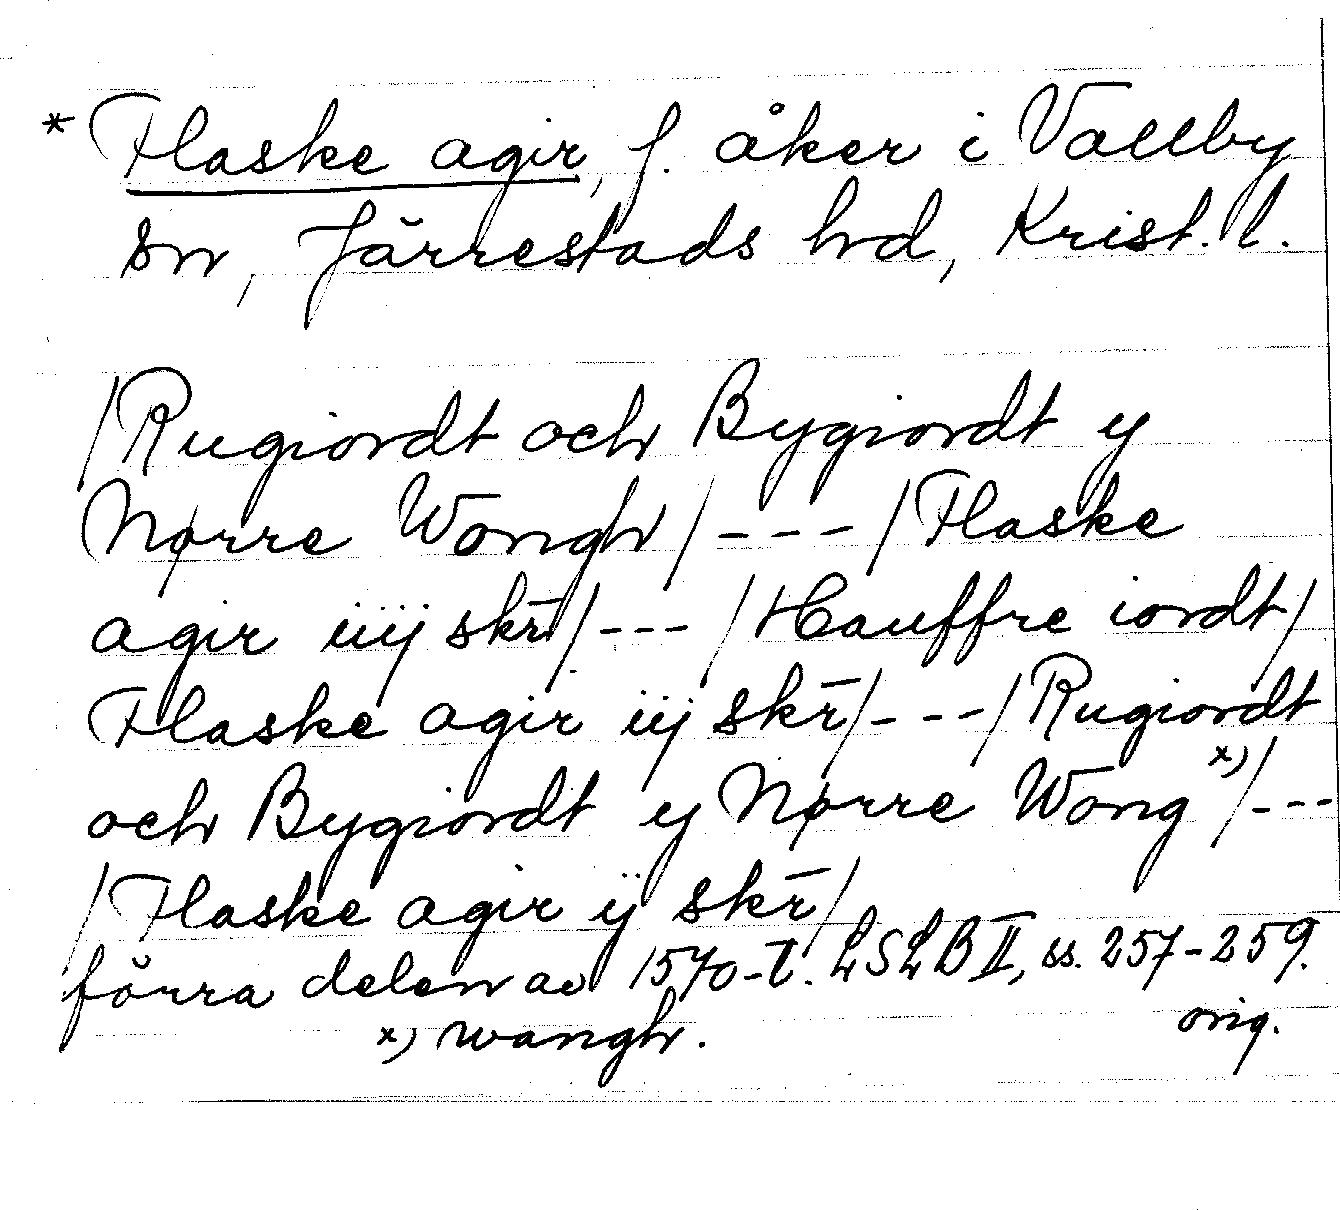 * Flaske agir, f. åker i Vallby
sn, Järrestads hd, Krist. l.
/Rugiordt och Bygiordt y
Nørre Wongh/---/Flaske
agir iiij skr̄/---/Hauffre iordt/
Flaske agir iij skr̄/---/Rugiordt
och Bygiordt y Nørre Wong x)/---
/Flaske agir ij skr̄/
förra delen av 1570-t. LSLB II, ss. 257-259.
x) wangh. orig.